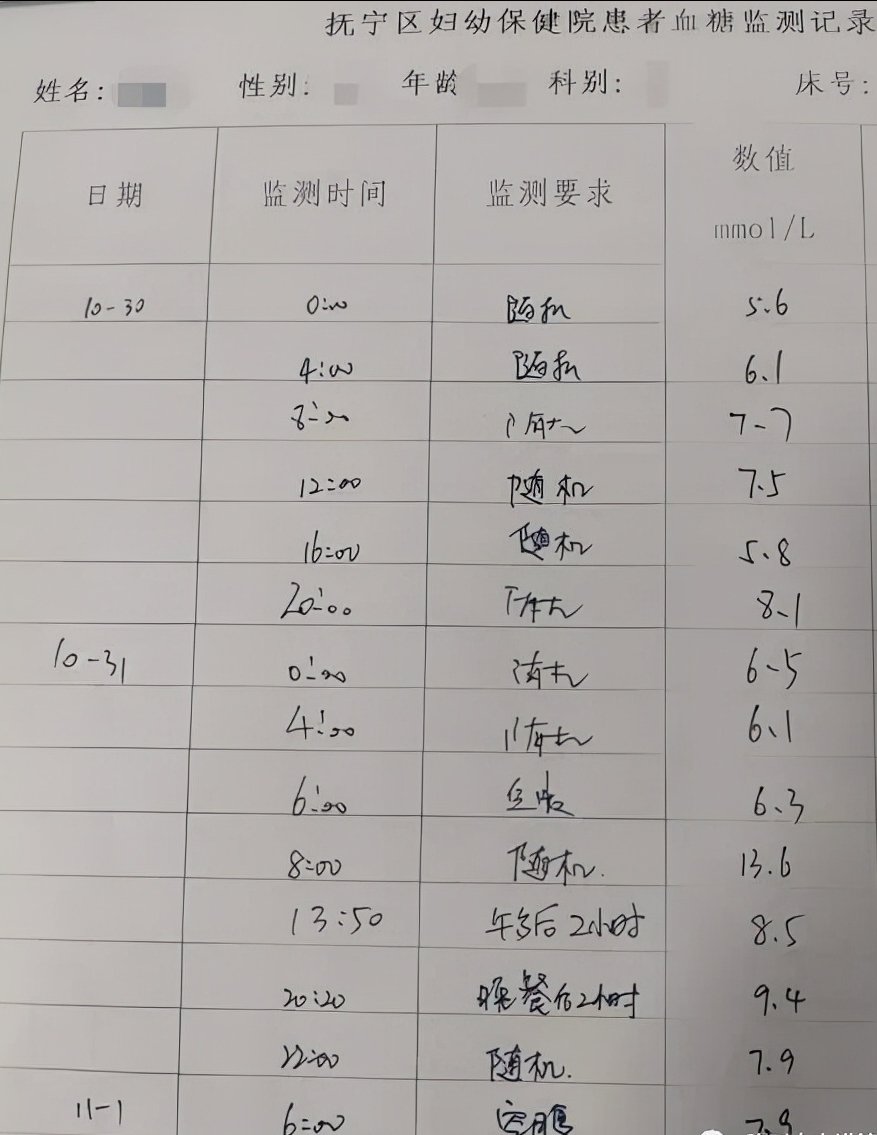 抚宁区妇幼保健院患者血糖监测记录
姓名: 性别: 年龄 科别: 床号:
日期 监测时间 监测要求 数值 mmol/L
10-30 0:00 随机 5.6
4:00 随机 6.1
8:00 随机 7-7
12:00 随机 7.5
16:00 随机 5.8
20:00 随机 8-1
10-31 0:00 随机 6-5
4:00 随机 6.1
6:00 空腹 6.3
8:00 随机. 13.6
13:50 午餐后2小时 8.5
20:20 晚餐后2小时 9.4
22:00 随机. 7.9
11-1 6:00 空腹 7.9